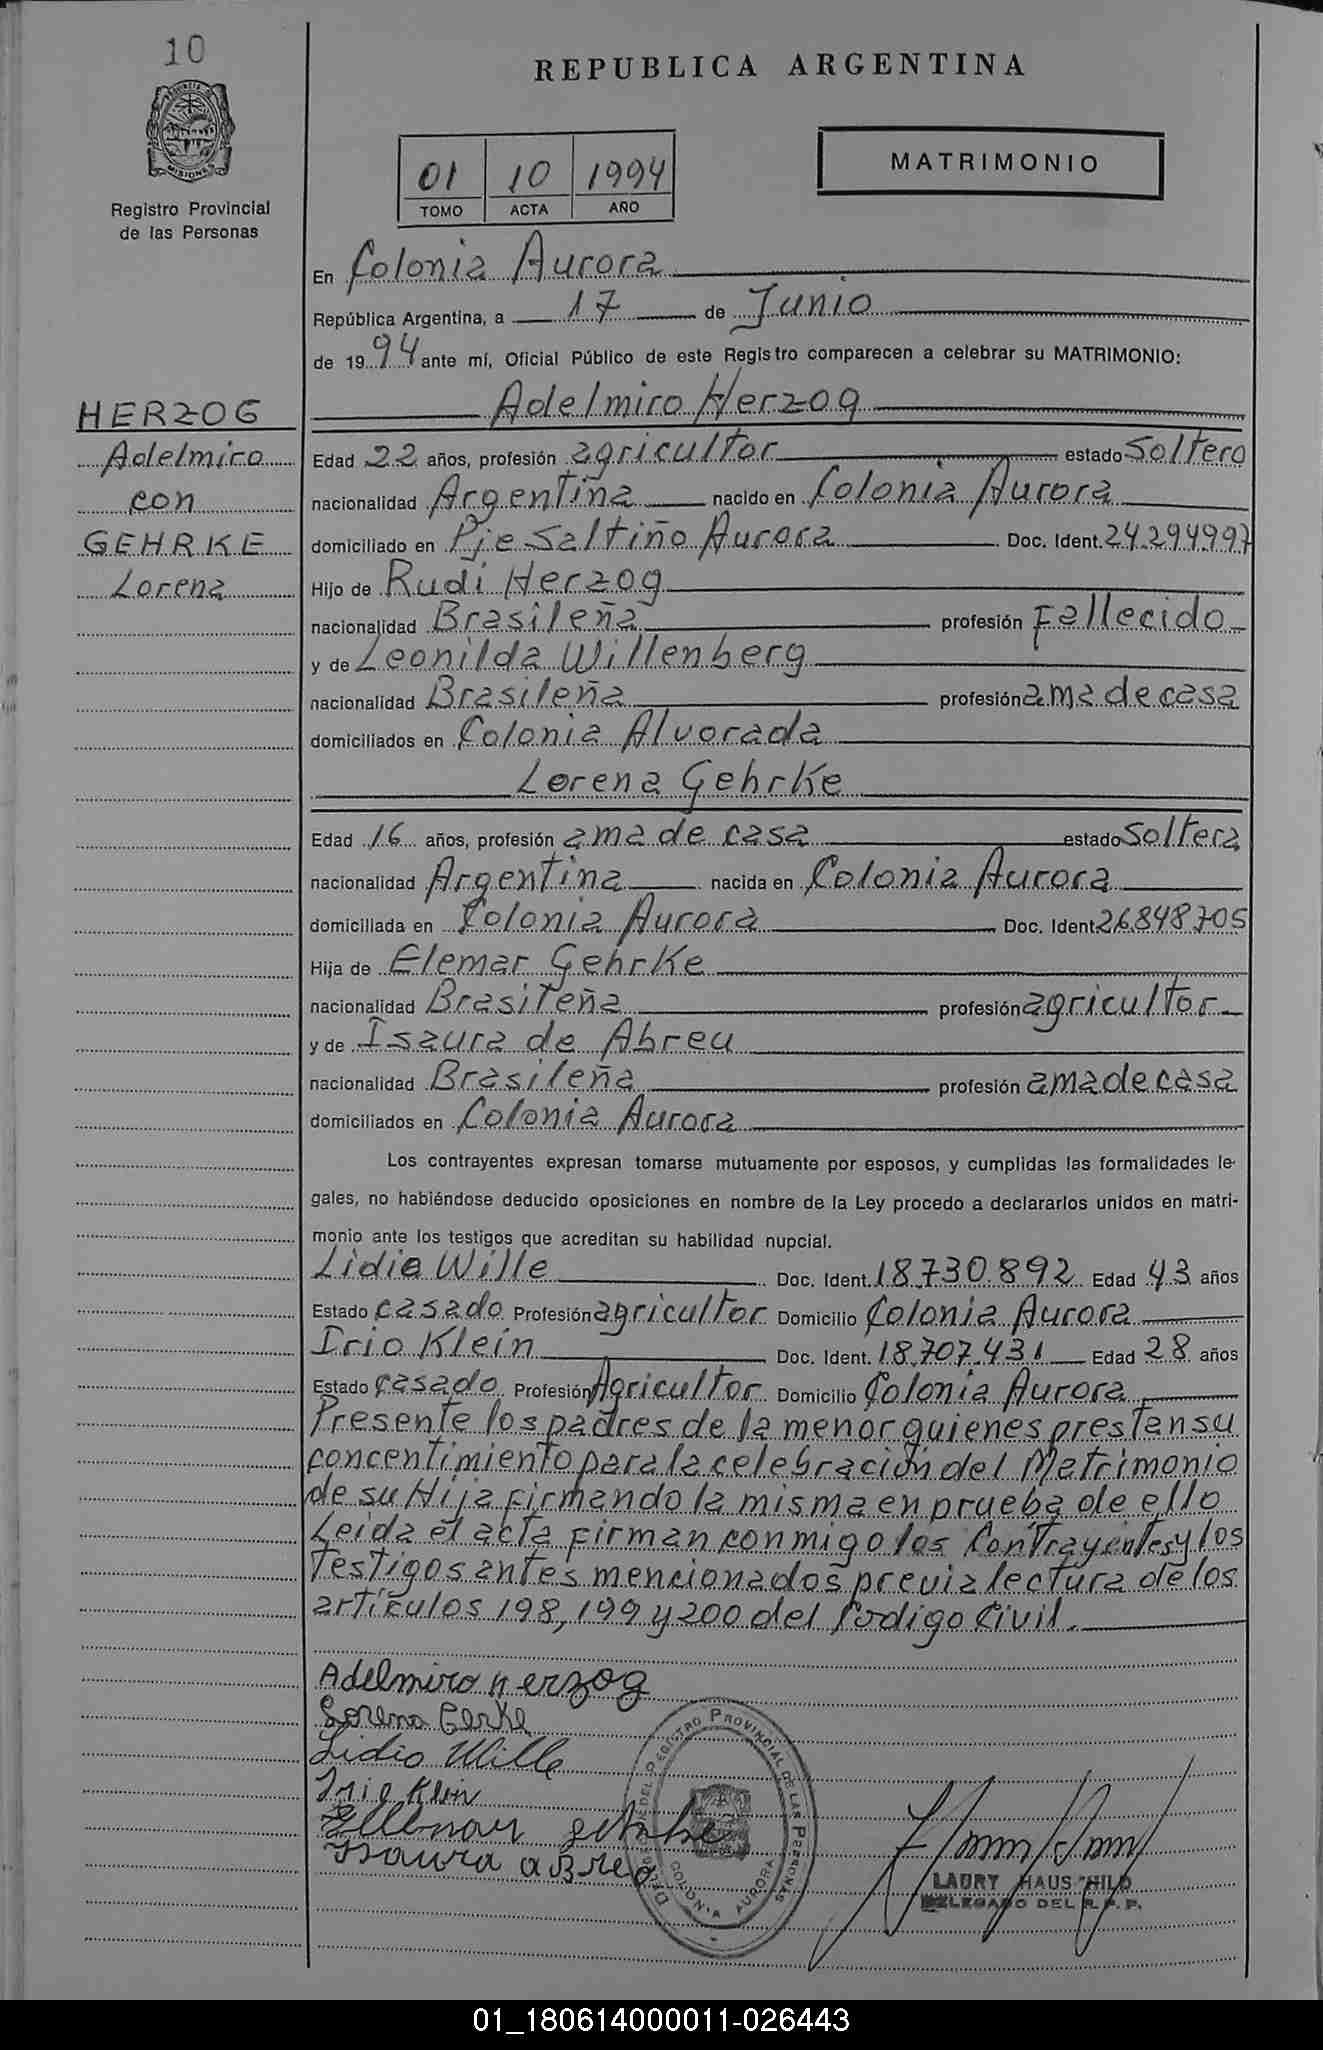 10
PROVINCIA DE
MISIONES
Registro Provincial
de las Personas
REPUBLICA ARGENTINA
01 10 1994
TOMO ACTA AÑO
MATRIMONIO
En Colonia Aurora
República Argentina, a 17 de Junio
de 1994 ante mí, Oficial Público de este Registro comparecen a celebrar su MATRIMONIO:
HERZOG
Adelmiro
con
GEHRKE
Lorena
Adelmiro Herzog
Edad 22 años, profesión agricultor estado Soltero
nacionalidad Argentina nacido en Colonia Aurora
domiciliado en Pje Saltiño Aurora Doc. Ident. 24.294.997
Hijo de Rudi Herzog
nacionalidad Brasileña profesión Fallecido
y de Leonilda Willenberg
nacionalidad Brasileña profesión ama de casa
domiciliados en Colonia Alvorada
Lorena Gehrke
Edad 16 años, profesión ama de casa estado Soltera
nacionalidad Argentina nacida en Colonia Aurora
domiciliada en Colonia Aurora Doc. Ident. 26.848.705
Hija de Elemar Gehrke
nacionalidad Brasileña profesión agricultor
y de Isaura de Abreu
nacionalidad Brasileña profesión ama de casa
domiciliados en Colonia Aurora
Los contrayentes expresan tomarse mutuamente por esposos, y cumplidas las formalidades le-
gales, no habiéndose deducido oposiciones en nombre de la Ley procedo a declararlos unidos en matri-
monio ante los testigos que acreditan su habilidad nupcial.
Lidio Wille Doc. Ident. 18.730.892 Edad 43 años
Estado casado Profesión agricultor Domicilio Colonia Aurora
Irio Klein Doc. Ident. 18.707.431 Edad 28 años
Estado casado Profesión Agricultor Domicilio Colonia Aurora
Presente los padres de la menor quienes prestan su
concentimiento para la celebración del Matrimonio
de su Hija firmando la misma en prueba de ello
Leida el acta firman conmigo los Contrayentes y los
testigos antes mencionados previa lectura de los
artículos 198, 199 y 200 del Codigo Civil.
Adelmiro Herzog
Lorena Gerke
Lidio Wille
Irio Klein
Isaura aBreo
DEL REGISTRO PROVINCIAL DE LAS PERSONAS
COLONIA AURORA
LAURY HAUS HILD
DELEGADO DEL R. P. P.
01_180614000011-026443